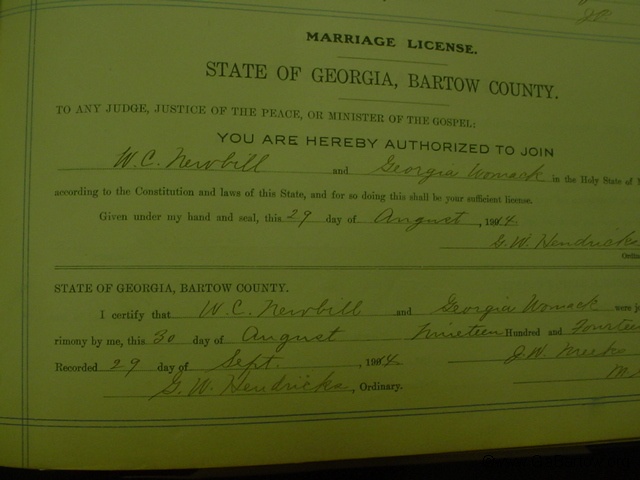 MARRIAGE LICENSE.
STATE OF GEORGIA, BARTOW COUNTY.
TO ANY JUDGE, JUSTICE OF THE PEACE, OR MINISTER OF THE GOSPEL:
YOU ARE HEREBY AUTHORIZED TO JOIN
W.C. Newbill and Georgia Womack in the Holy State of
according to the Constitution and laws of this State, and for so doing this shall be your sufficient license.
Given under my hand and seal, this 29 day of August, 1914.
G.W. Hendricks
Ordin
STATE OF GEORGIA, BARTOW COUNTY.
I certify that W.C. Newbill and Georgia Womack were jo
rimony by me, this 30 day of August Nineteen Hundred and Fourteen
Recorded 29 day of Sept., 1914 J.W.
G.W. Hendricks, Ordinary.